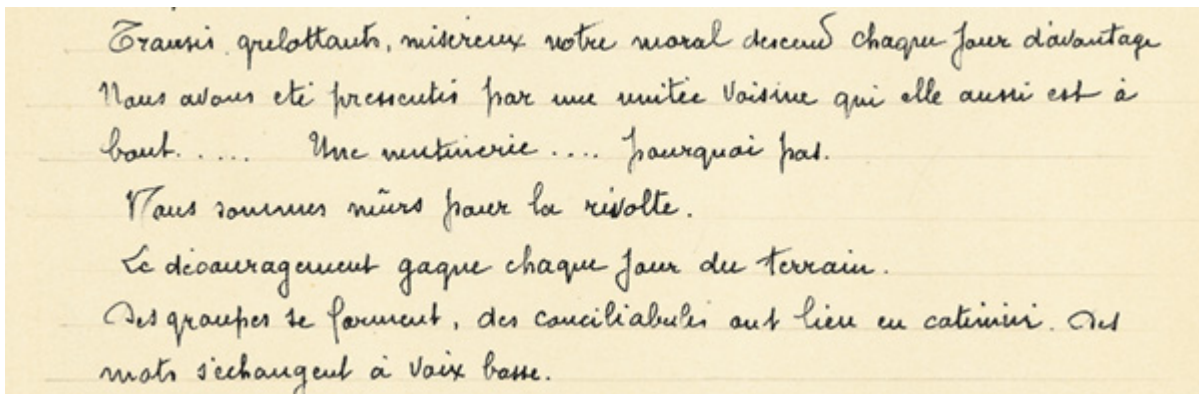 Transis grelottants, miséreux notre moral descend chaque jour d'avantage
Nous avons eté pressentis par une unitée voisine qui elle aussi est à
bout..... Une mutinerie.... pourquoi pas.
Nous sommes mûrs pour la révolte.
Le découragement gagne chaque jour du terrain.
Des groupes se forment, des conciliabules ont lieu en catimini. Des
mots s'echangent à voix basse.